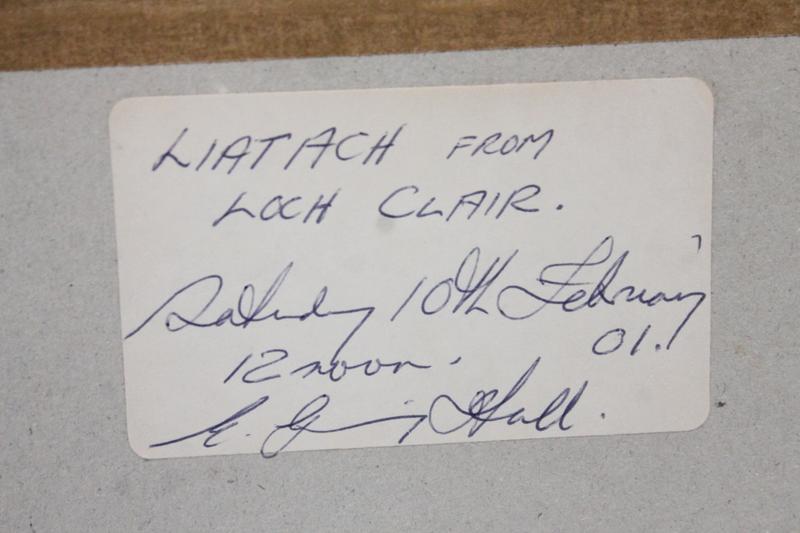 LIATHACH FROM
LOCH CLAIR.
Saturday 10th February
'01.
12 noon.
E. Hall.